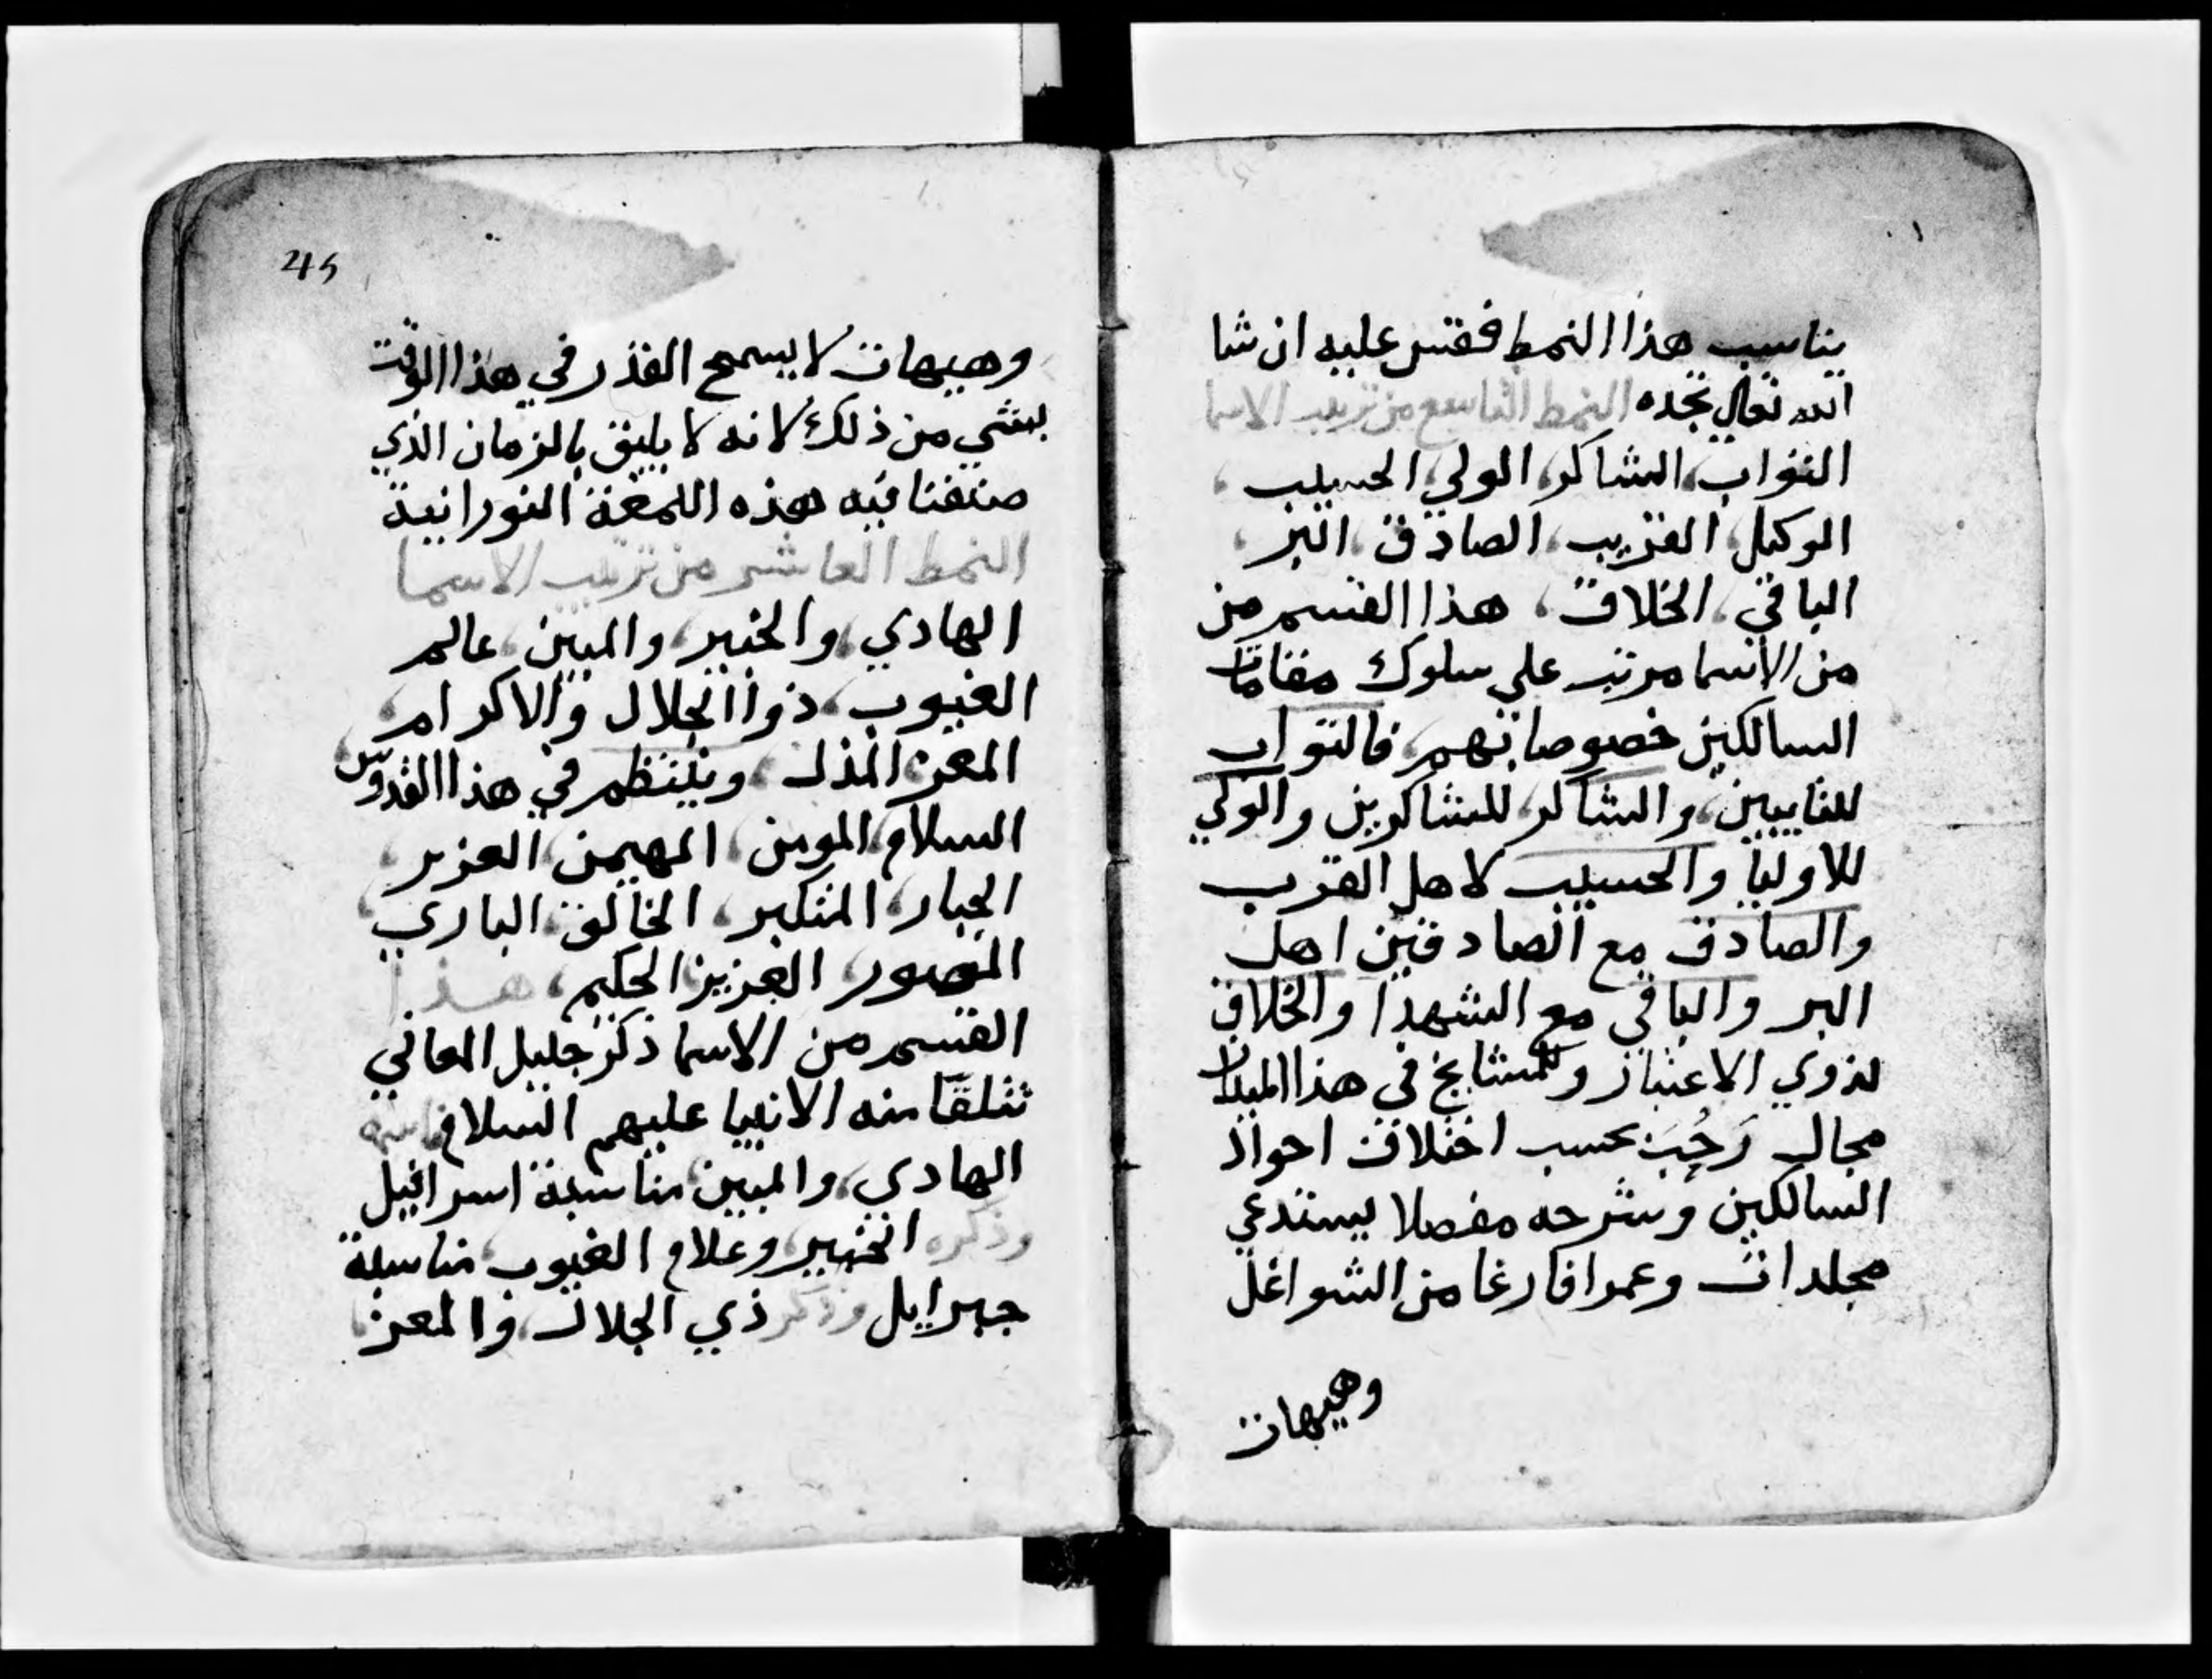 يناسب هذا النمط فقس عليه ان شا
الله تعالي تجده النمط التاسع من ترتيب الاسما
التواب، الشاكر، الولي، الحسيب،
الوكيل، القريب، الصادق، البر،
الباقي، الخلاق، هذا القسم من
من الاسما مرتب علي سلوك مقامات
السالكين خصوصا تهم، فالتواب
للتايبين، والشاكر، للشاكرين والولي
للاوليا والحسيب لاهل القرب
والصادق مع الصادقين اهل
البر والباقي مع الشهدا والخلاق
لذوي الاعتبار وللمشايخ في هذا الميدان
مجال رَحُب بحسب اختلاف احوال
السالكين وشرحه مفصلا يستدعي
مجلدات وعمرا فارغا من الشواغل
وهيهات
45
وهيهات لا يسمح القدر في هذا الوقت
بشي من ذلك لانه لا يليق بالزمان الذي
صنفنا فيه هذه اللمعة النورانية
النمط العاشر من ترتيب الاسما
الهادي، والخبير، والمبين، عالم
الغيوب، ذوا الجلال والاكرام،
المعز، المذل، وينتظم في هذا القدوس،
السلام، المومن، المهيمن، العزيز،
الجبار، المتكبر، الخالق، الباري،
المصور، العزيز الحكيم، هذا
القسم من الاسما ذكر جليل المعاني
تتلقا منه الانبيا عليهم السلام
الهادي، والمبين، مناسبة اسرافيل
وذكره الخبير، وعلام الغيوب، مناسبة
جبرايل وذكر ذي الجلال، والمعز،